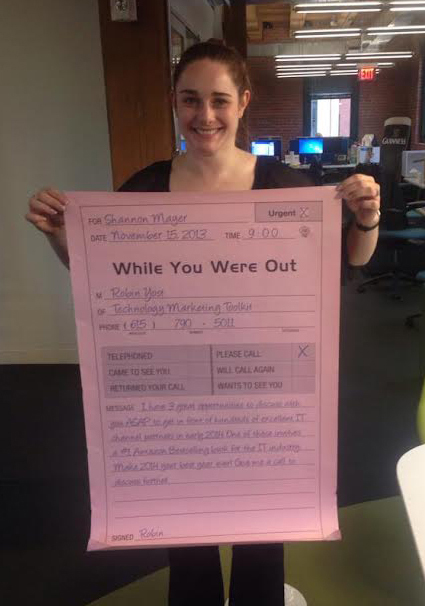 EXIT
GUINNESS
FOR Shannon Mayer Urgent X
DATE November 15, 2013 TIME 9:00
While You Were Out
M Robin Yost
OF Technology Marketing Toolkit
PHONE (615) 790 - 5011
TELEPHONED PLEASE CALL X
CAME TO SEE YOU WILL CALL AGAIN
RETURNED YOUR CALL WANTS TO SEE YOU
MESSAGE I have 3 great opportunities to discuss with
you ASAP to get in front of hundreds of excellent IT
channel partners in early 2014. One of these involves
a #1 Amazon Bestselling book for the IT industry.
Make 2014 your best year ever! Give me a call to
discuss further.
SIGNED Robin